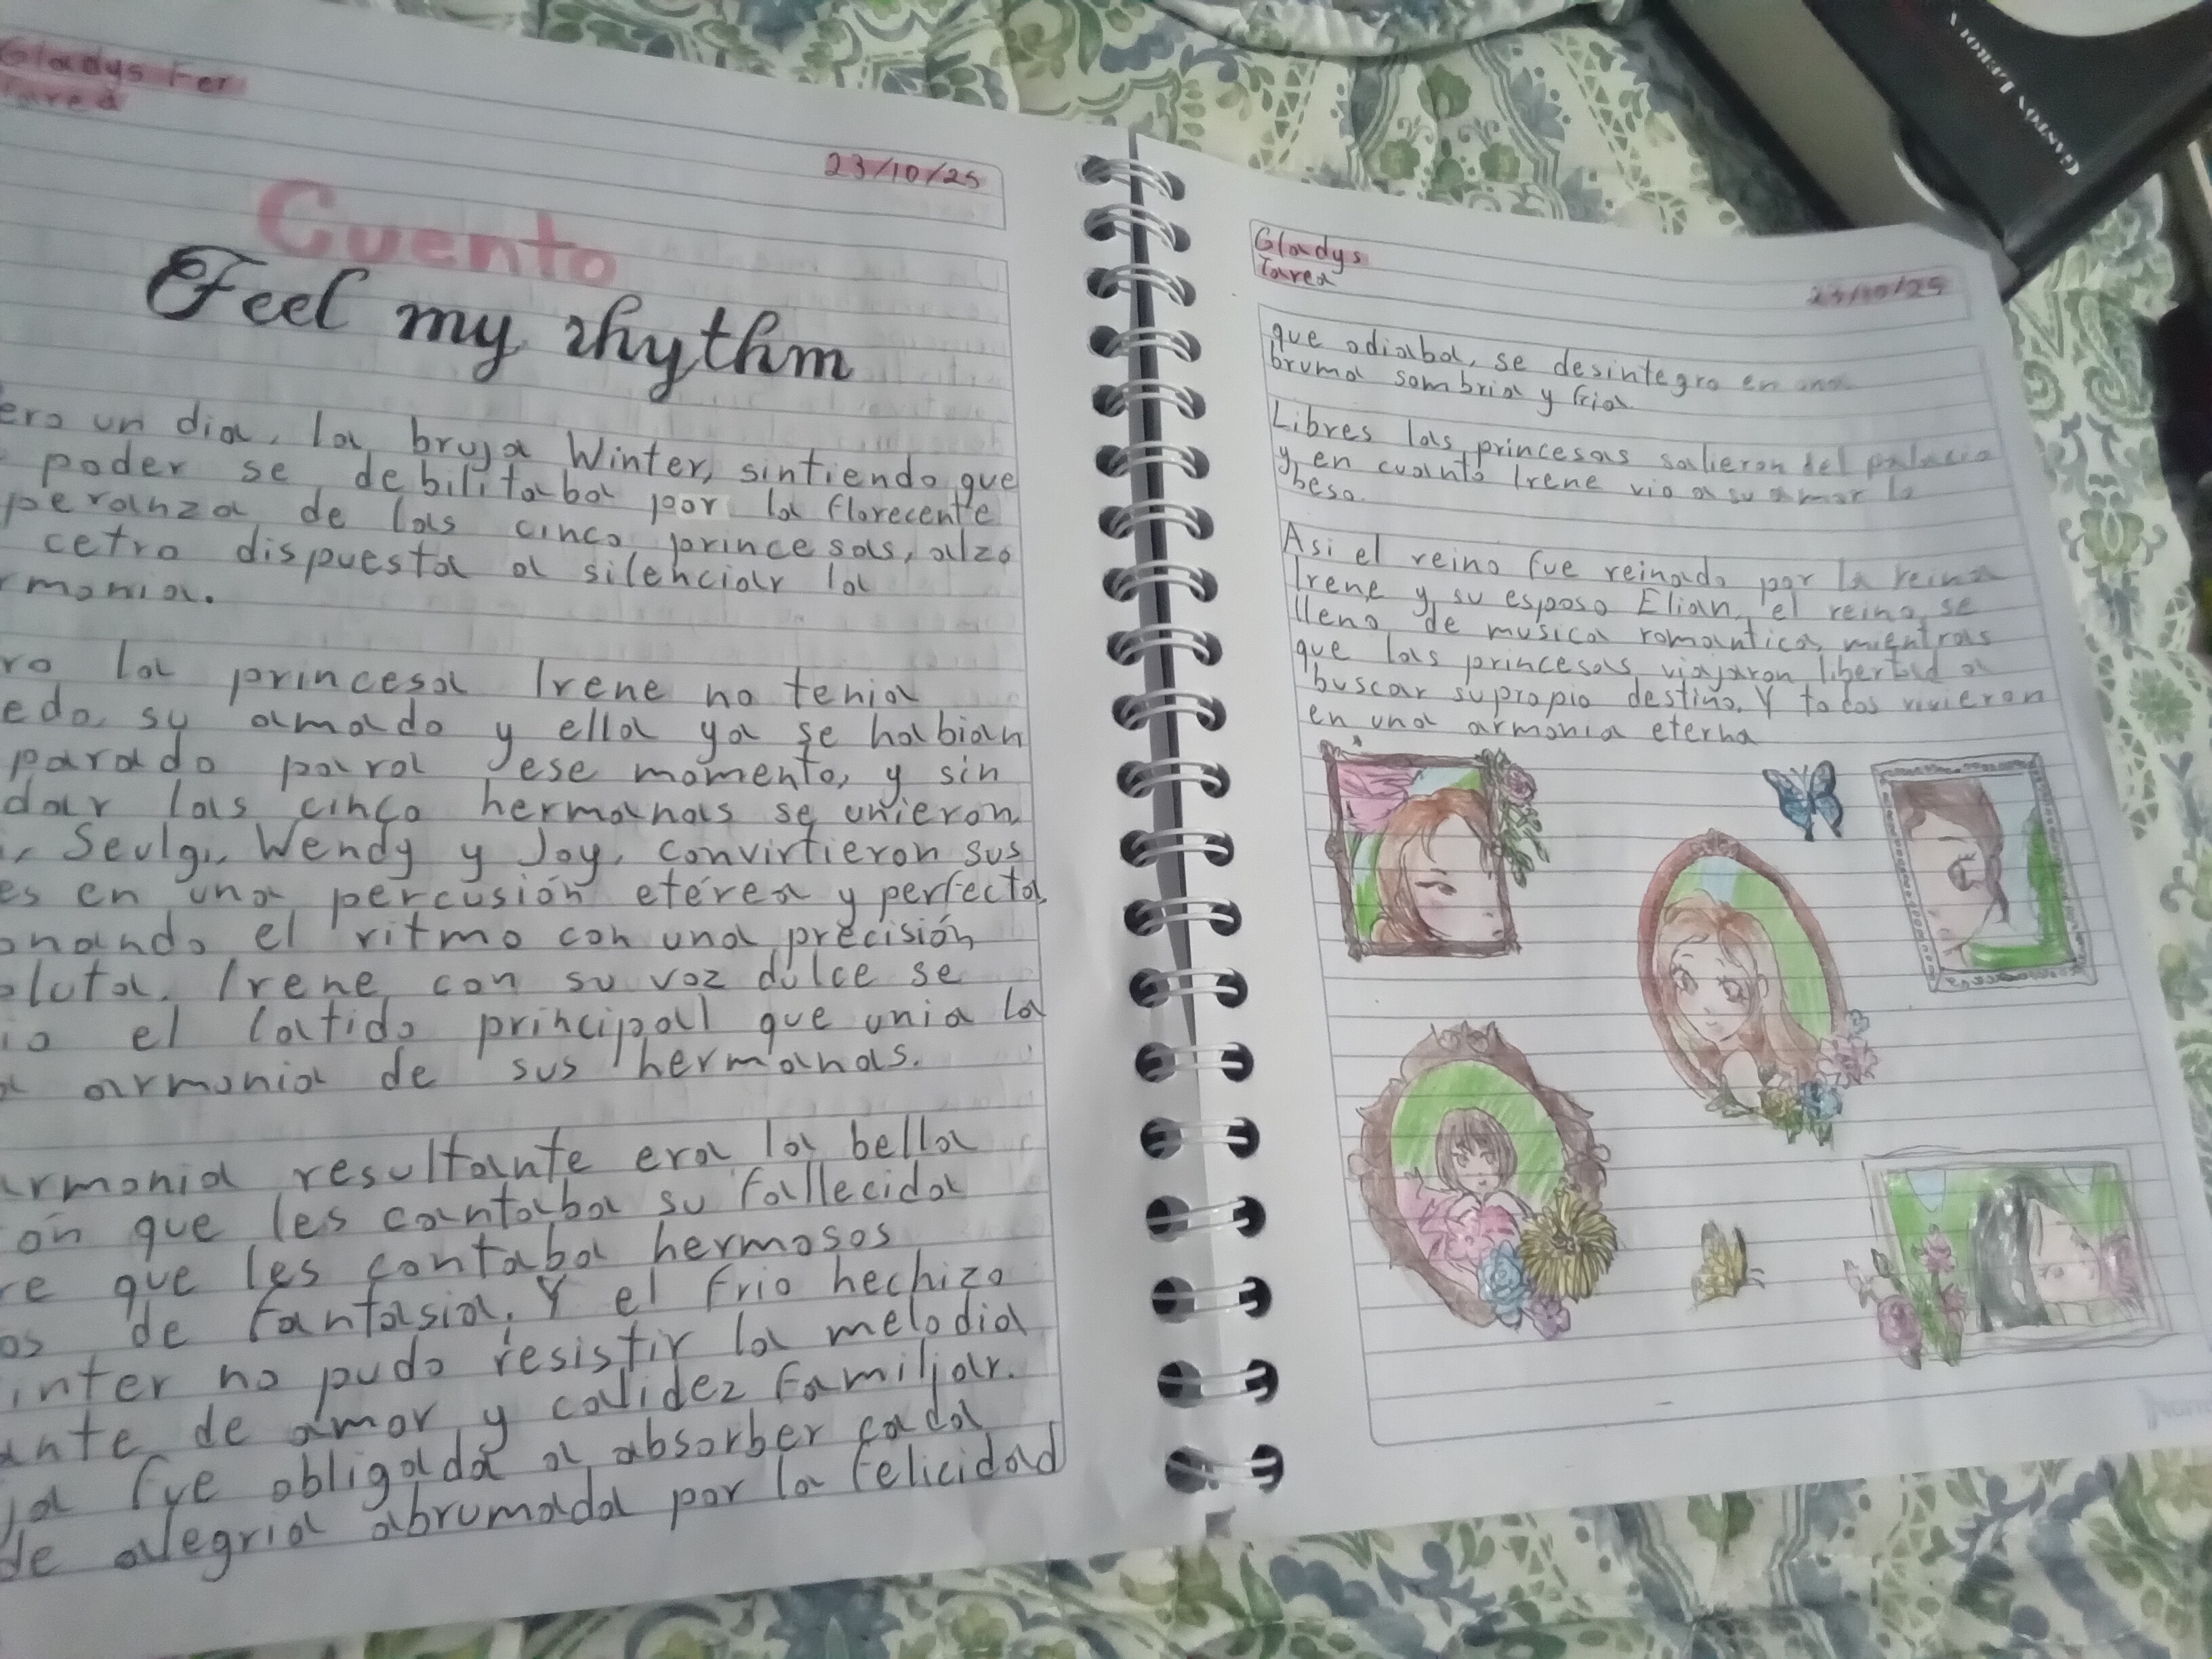 Gladys Fer
Tarea
23/10/25
Cuento
Feel my rhythm
ero un dia, la bruja Winter, sintiendo que
poder se debilitaba por la florecente
peranza de las cinco princesas, alzo
cetro dispuesta a silenciar la
rmonia.
ro la princesa Irene no tenia
edo, su amado y ella ya se habian
parado para ese momento, y sin
dar las cinco hermanas se unieron,
i, Seulgi, Wendy y Joy, convirtieron sus
es en una percusión etérea y perfecta,
onando el ritmo con una precisión
oluta. Irene con su voz dulce se
io el latido principal que unia la
a armonia de sus hermanas.
armonia resultante era la bella
on que les cantaba su fallecida
re que les contaba hermosos
os de fantasia. Y el frio hechizo
inter no pudo resistir la melodia
ante de amor y calidez familiar.
ja fue obligada a absorber cada
de alegria abrumada por la felicidad
Gladys
Tarea
23/10/25
que odiaba, se desintegro en una
bruma sombria y fria.
Libres las princesas salieron del palacio
y en cuanto Irene vio a su amor lo
beso.
Asi el reino fue reinado por la reina
Irene y su esposo Elian, el reino se
lleno de musica romantica, mientras
que las princesas viajaron libertad a
buscar su propio destino. Y todos vivieron
en una armonia eterna
GASTON LEROUX
Norma